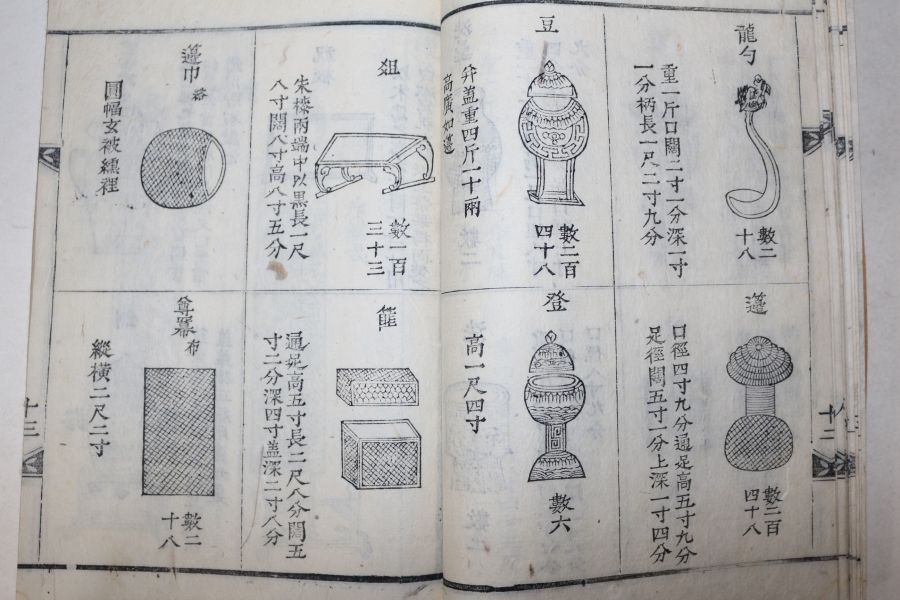 龍勺
重一斤口闊二寸一分深一寸
一分柄長一尺二寸九分
數二
十八
籩
口徑四寸九分通足高五寸九分
足徑闊五寸一分上深一寸四分
數二百
四十八
豆
并盖重四斤一十兩
高廣如籩
數二百
四十八
登
高一尺四寸
數六
俎
朱漆兩端中以黒長一尺
八寸闊八寸高八寸五分
數一百
三十三
篚
通足高五寸長二尺八分闊五
寸二分深四寸盖深二寸八分
籩巾
綌
圓幅玄被纁裡
尊冪
布
縱横二尺二寸
數二
十八
十二
十三